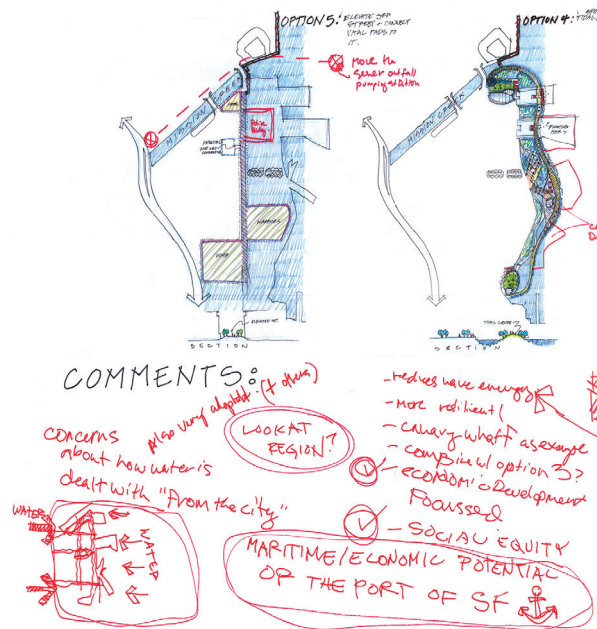 OPTION 5:
ELEVATE 3RD
STREET + CONNECT
VITAL PADS TO
IT.
OPTION 4:
Move the
sewer outfall
pumping station
MISSION CREEK
Police
Bldg
MISSION CREEK
ELEVATED ST.
SECTION
TIDAL LEVEE
SECTION
COMMENTS:
also very adaptable (+ others)
concerns
about how water is
dealt with "from the city"
LOOK AT
REGION?
- reduces wave energy
- More resilient
- canary wharf as example
- combine w/ option 3?
- ECONOMIC Development
Focussed
- SOCIAL EQUITY
WATER
WATER
MARITIME/ECONOMIC POTENTIAL
OF THE PORT OF SF